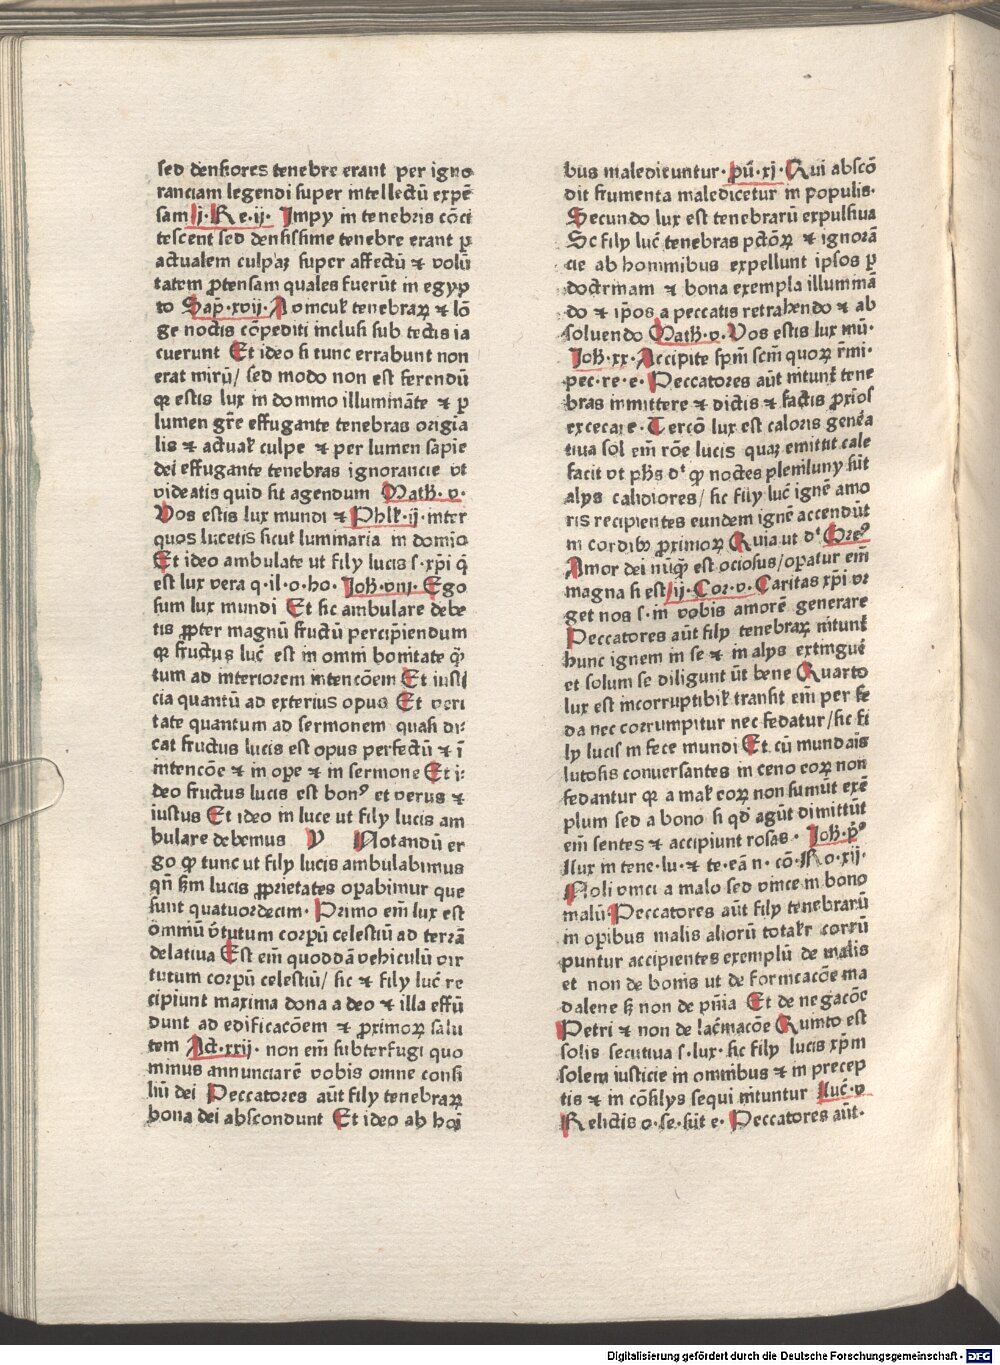 sed densiores tenebre erant per igno
ranciam legendi super intellectū expē
sam .j. Re .ij. Impy in tenebris cōti
tescent sed densissime tenebre erant p̱
actualem culpaꝫ super affectū ⁊ volū
tatem ꝓtensam quales fuerūt in egyp
to Sap̄.xvij. Uomculꝭ tenebraꝝ ⁊ lō
ge noctis cōpediti inclusi sub tectis ia
cuerunt Et ideo si tunc errabunt non
erat mirū/ sed modo non est ferendū
qꝛ estis lux in domino illumināte ⁊ p̱
lumen gr̄e effugante tenebras origia
lis ⁊ actualꝭ culpe ⁊ per lumen sapie
dei effugante tenebras ignorancie vt
videatis quid sit agendum Math̄.v.
Vos estis lux mundi ⁊ Phlꝭ.ij. inter
quos lucetis sicut luminaria in domīo
Et ideo ambulate ut fily lucis s. xp̄i q̄
est lux vera q.il.o.ho. Joh̄.vnj. Ego
sum lux mundi Et sic ambulare debe
tis ꝓpter magnū fructū percipiendum
qꝛ fructus luc̄ est in omni bonitate q̄
tum ad interiorem intencōem Et iusti
cia quantū ad exterius opus Et veri
tate quantum ad sermonem quasi di:
cat fructus lucis est opus perfectū ⁊ ī
intencōe ⁊ in ope ⁊ in sermone Et i:
deo fructus lucis est bonꝰ et verus ⁊
iustus Et ideo in luce ut fily lucis am
bulare debemus V Notandū er
go qꝛ tunc ut fily lucis ambulabimus
qn̄ sꝫm lucis ꝓprietates opabimur que
sunt quatuordecim. Primo em̄ lux est
ōmniū v̄tutum corpū celestiū ad terrā
delatiua Est em̄ quoddā vehiculū vir
tutum corpū celestiū/ sic ⁊ fily luc̄ re
cipiunt maxima dona a deo ⁊ illa effū
dunt ad edificacōem ⁊ ꝓximoꝝ salu
tem Act̄.xxij. non em̄ subterfugi quo
minus annunciarē vobis omne consi
liū dei Peccatores aūt fily tenebraꝝ
bona dei abscondunt Et ideo ab hoī
bus maledicuntur. pū.xj. Qui abscō
dit frumenta maledicetur in populis.
Secundo lux est tenebrarū expulsiua
Sc fily luc̄ tenebras pctōꝝ ⁊ ignorā
cie ab hominibus expellunt ipsos p̱
doctrinam ⁊ bona exempla illuminā
do ⁊ ip̄os a peccatis retrahendo ⁊ ab
soluendo Math̄.v. Vos estis lux mū.
Joh̄.xx. Accipite sp̄m sc̄m quoꝝ r̄mi.
pec.re.e. Peccatores aūt nitunꝉ tene
bras inmittere ⁊ dictis ⁊ factis ꝓxīos
excecare. Tercō lux est caloris genēa
tiua sol em̄ rōe lucis quaꝫ emittit cale
facit vt ph̄s dꝉ qꝛ noctes plenilunij sūt
alys calidiores/ sic fily luc̄ ignē amo
ris recipientes eundem ignē accendūt
in cordibꝫ ꝓximoꝝ Quia ut dꝉ Greꝰ
Amor dei nūꝗ̄ est ociosus/opatur em̄
magna si est ij.Cor.v. Caritas xp̄i vr
get nos s. in vobis amorē generare
Peccatores aūt fily tenebraꝝ nitunꝉ
hunc ignem in se ⁊ in alys extingué
et solum se diligunt ūt bene Quarto
lux est incorruptibilꝭ transit em̄ per fe
da nec corrumpitur nec fedatur/ sic fi
ly lucis in fece mundi Et cū mundais
lutosis conuersantes in ceno eoꝝ non
fedantur qꝛ a malꝭ eoꝝ non sumūt exē
plum sed a bono si qd̄ agūt dimittūt
em̄ sentes ⁊ accipiunt rosas. Joh̄.pº
Lux in tene.lu.⁊ te.eā n.cō. Ro.xij.
Noli vinci a malo sed vince in bono
malū Peccatores aūt fily tenebrarū
in opibus malis aliorū totalr̄ corrū
puntur accipientes exemplū de malis
et non de bonis ut de fornicacōe ma
dalene sꝫ non de pn̄ia Et de negacōe
Petri ⁊ non de lacrimacōe Quinto est
solis secutiua s. lux. sic fily lucis xp̄m
solem iusticie in omnibus ⁊ in precep
tis ⁊ in cōsilys sequi nituntur Luc̄.v
Relictis o.se.sūt e. Peccatores aūt.
Digitalisierung gefördert durch die Deutsche Forschungsgemeinschaft - DFG